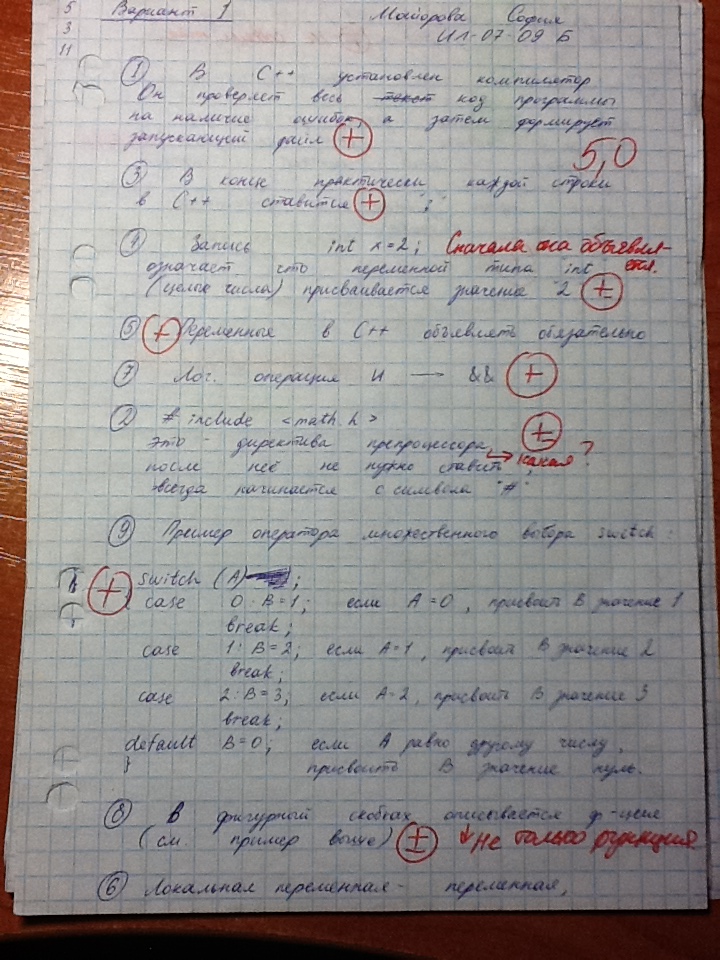 5
3
11
Вариант 1 Майорова София
ИЛ-07-09 Б
① В С++ установлен компилятор
Он проверяет весь текст код программы
на наличие ошибок, а затем формирует
запускающий файл +
5,0
③ В конце практически каждой строки
в С++ ставится + ";"
④ Запись int x=2; Сначала она объявля-
ется.
означает, что переменной типа int
(целые числа) присваивается значение 2 ±
⑤ + Переменные в С++ объявлять обязательно
⑦ Лог. операция И → && +
② # include <math.h> ±
это - директива препроцессора, → какая?
после неё не нужно ставить ;
всегда начинается с символа "#"
⑨ Пример оператора множественного выбора switch:
+ switch (A) ;
{ case 0: B=1; если A=0, присвоить B значение 1
break;
case 1: B=2; если A=1, присвоить B значение 2
break;
case 2: B=3; если A=2, присвоить B значение 3
break;
default B=0; если A равно другому числу,
} присвоить B значение нуль.
⑧ В фигурных скобках описывается ф-ция
(см. пример выше) ± ↓ Не только функция
⑥ Локальная переменная - переменная,